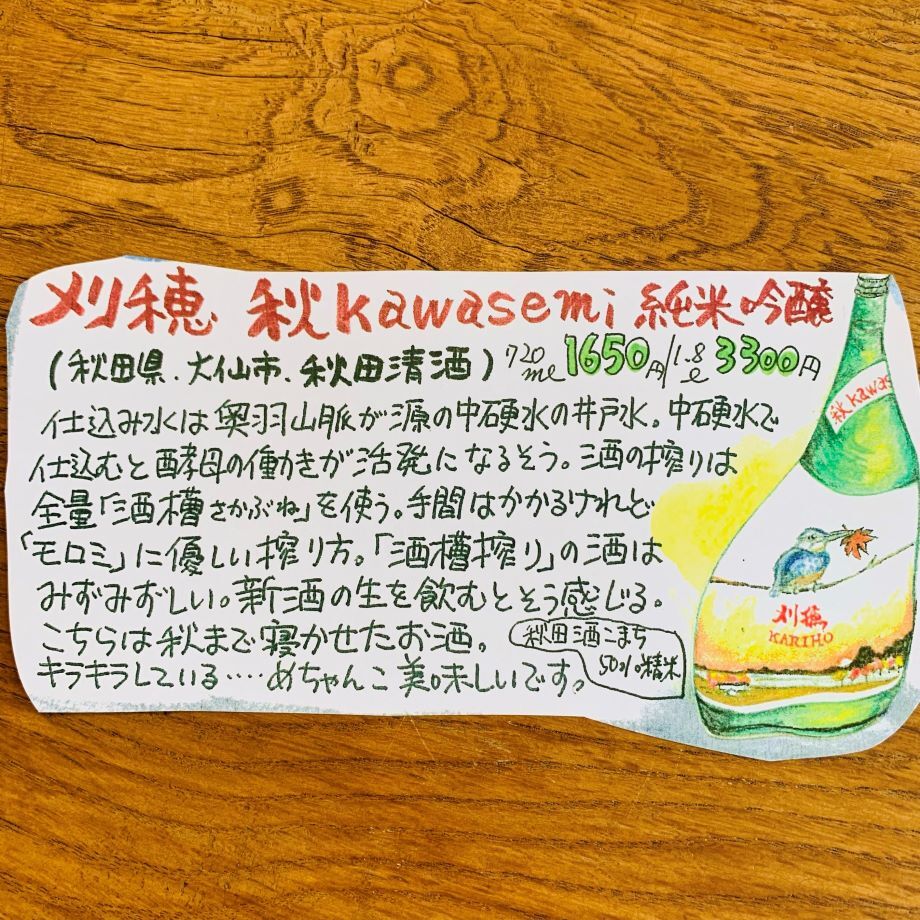 刈穂 秋kawasemi 純米吟醸
(秋田県.大仙市.秋田清酒) 720ml 1650円/1.8l 3300円
仕込み水は奥羽山脈が源の中硬水の井戸水。中硬水で
仕込むと酵母の働きが活発になるそう。酒の搾りは
全量「酒槽さかぶね」を使う。手間はかかるけれど
「モロミ」に優しい搾り方。「酒槽搾り」の酒は
みずみずしい。新酒の生を飲むとそう感じる。
こちらは秋まで寝かせたお酒。
キラキラしている‥‥めちゃんこ美味しいです。
秋田酒こまち
50%精米
秋kawas
刈穂
KARIHO